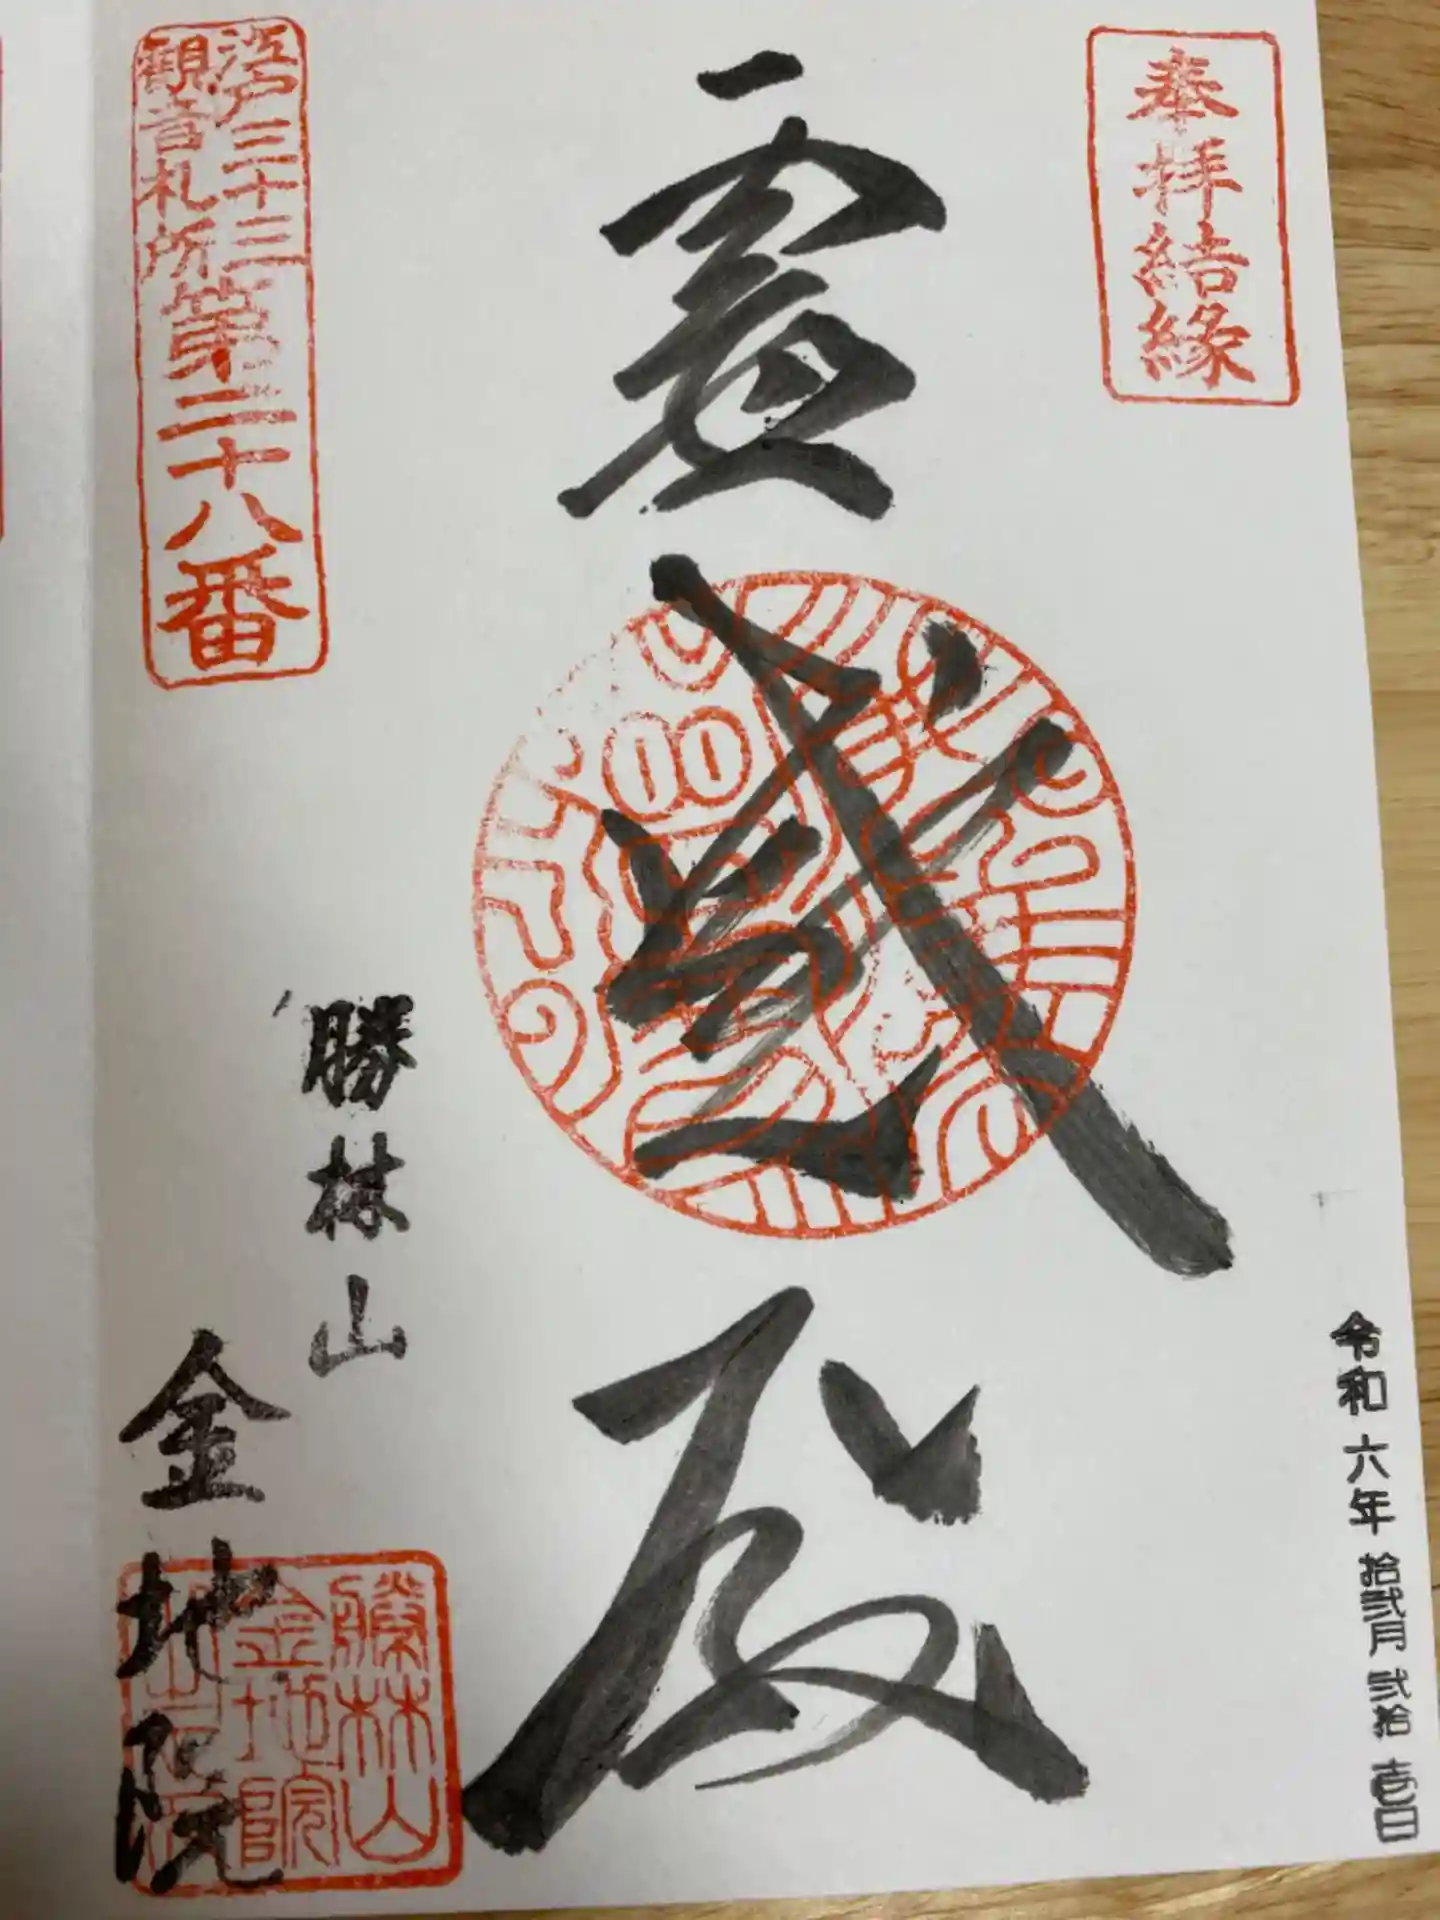 奉拝結縁
令和六年拾弐月弐拾壱日
霊感殿
江戸三十三
観音札所
第二十八番
勝林山
金地院
勝林山
金地院